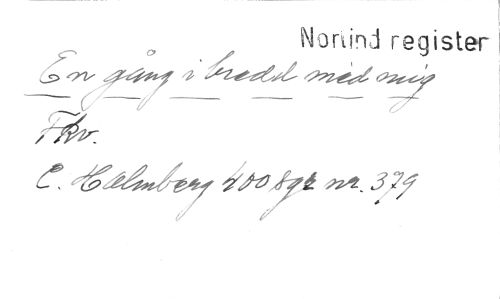 Norlind register
En gång i bredd med mig
Fkv.
C. Holmberg 400 Sgr nr. 379